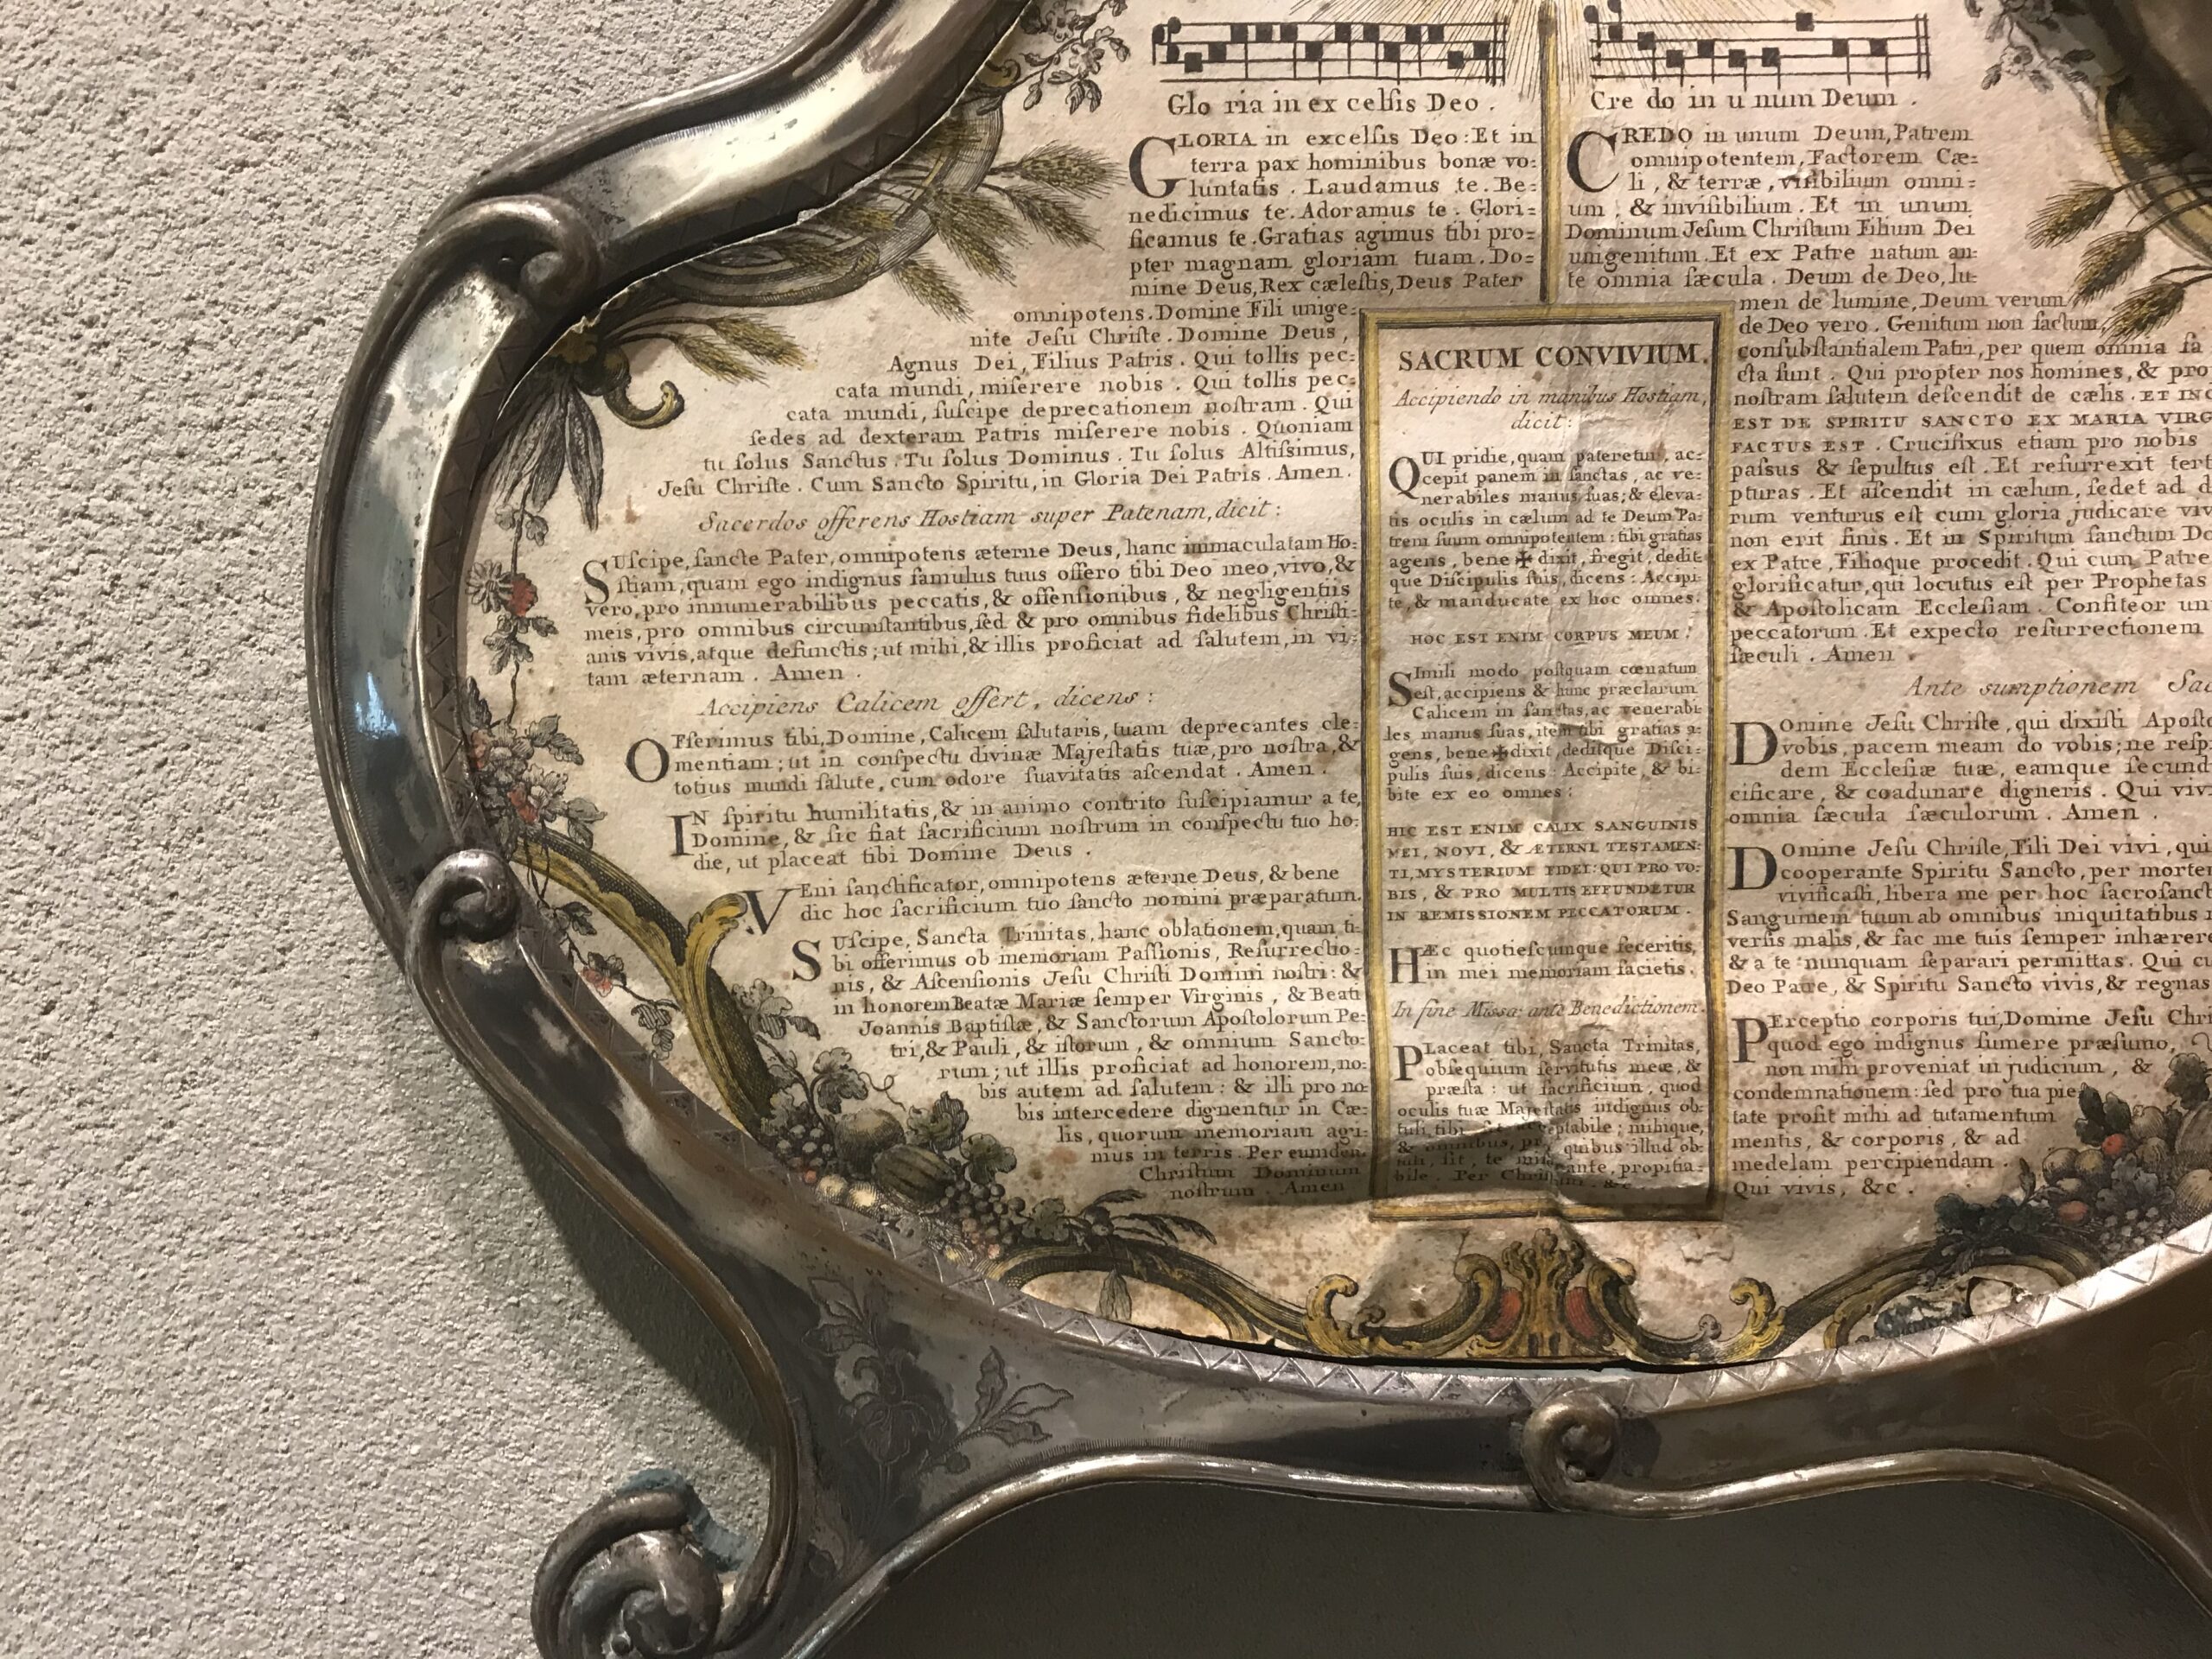 Glo ria in ex celſis Deo .
GLORIA in excelſis Deo : Et in
terra pax hominibus bonæ vo=
luntatis . Laudamus te . Be=
nedicimus te . Adoramus te . Glori=
ficamus te . Gratias agimus tibi pro=
pter magnam gloriam tuam . Do=
mine Deus, Rex cæleſtis, Deus Pater
omnipotens . Domine Fili unige=
nite Jeſu Chriſte . Domine Deus ,
Agnus Dei, Filius Patris . Qui tollis pec=
cata mundi, miſerere nobis . Qui tollis pec=
cata mundi, ſuſcipe deprecationem noſtram . Qui
ſedes ad dexteram Patris miſerere nobis . Quoniam
tu ſolus Sanctus . Tu ſolus Dominus . Tu ſolus Altiſſimus,
Jeſu Chriſte . Cum Sancto Spiritu, in Gloria Dei Patris . Amen .
Sacerdos offerens Hostiam super Patenam, dicit :
SUſcipe, ſancte Pater, omnipotens æterne Deus, hanc immaculatam Ho=
ſtiam, quam ego indignus famulus tuus offero tibi Deo meo, vivo, &
vero, pro innumerabilibus peccatis, & offenſionibus , & negligentiis
meis, pro omnibus circumſtantibus, ſed & pro omnibus fidelibus Chriſti=
anis vivis, atque defunctis ; ut mihi, & illis proficiat ad ſalutem, in vi=
tam æternam . Amen .
Accipiens Calicem offert, dicens :
OFferimus tibi, Domine, Calicem ſalutaris, tuam deprecantes cle=
mentiam ; ut in conſpectu divinæ Majeſtatis tuæ, pro noſtra, &
totius mundi ſalute, cum odore ſuavitatis aſcendat . Amen .
IN ſpiritu humilitatis, & in animo contrito ſuſcipiamur a te,
Domine, & ſic fiat ſacrificium noſtrum in conſpectu tuo ho=
die, ut placeat tibi Domine Deus .
VEni ſanctificator, omnipotens æterne Deus, & bene
dic hoc ſacrificium tuo ſancto nomini præparatum.
SUſcipe, Sancta Trinitas, hanc oblationem, quam ti=
bi offerimus ob memoriam Paſſionis, Reſurrectio=
nis, & Aſcenſionis Jeſu Chriſti Domini noſtri : &
in honorem Beatæ Mariæ ſemper Virginis , & Beati
Joannis Baptiſtæ, & Sanctorum Apoſtolorum Pe=
tri, & Pauli , & iſtorum , & omnium Sancto=
rum ; ut illis proficiat ad honorem, no=
bis autem ad ſalutem : & illi pro no
bis intercedere dignentur in Cæ=
lis, quorum memoriam agi=
mus in terris . Per eumdem
Chriſtum Dominum
noſtrum . Amen
SACRUM CONVIVIUM.
Accipiendo in manibus Hostiam,
dicit :
QUI pridie, quam pateretur, ac=
cepit panem in ſanctas , ac ve=
nerabiles manus ſuas ; & eleva=
tis oculis in cælum ad te Deum Pa=
trem ſuum omnipotentem : tibi gratias
agens , bene ✠ dixit, fregit, dedit
que Diſcipulis ſuis, dicens : Accipi=
te, & manducate ex hoc omnes .
HOC EST ENIM CORPUS MEUM .
SImili modo poſtquam cœnatum
eſt, accipiens & hunc præclarum
Calicem in ſanctas, ac venerabi=
les manus ſuas, item tibi gratias a=
gens, bene ✠ dixit, deditque Diſci=
pulis ſuis, dicens : Accipite, & bi=
bite ex eo omnes :
HIC EST ENIM CALIX SANGUINIS
MEI, NOVI, & ÆTERNI TESTAMEN=
TI, MYSTERIUM FIDEI : QUI PRO VO=
BIS, & PRO MULTIS EFFUNDETUR
IN REMISSIONEM PECCATORUM .
HÆc quotieſcumque feceritis,
in mei memoriam facietis .
In fine Missæ ante Benedictionem.
PLaceat tibi, Sancta Trinitas,
obſequium ſervitutis meæ, &
præſta : ut ſacrificium , quod
oculis tuæ Majeſtatis indignus ob=
tuli, tibi ſit acceptabile ; mihique,
& omnibus, pro quibus illud ob=
tuli, ſit, te miſerante, propitia=
bile . Per Chriſtum . &c
Cre do in u num Deum .
CREDO in unum Deum, Patrem
omnipotentem, Factorem Cæ=
li , & terræ , viſibilium omni=
um , & inviſibilium . Et in unum
Dominum Jeſum Chriſtum Filium Dei
unigenitum . Et ex Patre natum an=
te omnia ſæcula . Deum de Deo, lu=
men de lumine, Deum verum
de Deo vero . Genitum non factum,
conſubſtantialem Patri, per quem omnia fa
cta ſunt . Qui propter nos homines, & pro
noſtram ſalutem deſcendit de cælis . ET INC
EST DE SPIRITU SANCTO EX MARIA VIRG
FACTUS EST . Crucifixus etiam pro nobis
paſſus & ſepultus eſt . Et reſurrexit tert
pturas . Et aſcendit in cælum, ſedet ad d
rum venturus eſt cum gloria judicare viv
non erit finis . Et in Spiritum ſanctum Do
ex Patre, Filioque procedit . Qui cum Patre
glorificatur, qui locutus eſt per Prophetas
& Apoſtolicam Eccleſiam . Confiteor un
peccatorum . Et expecto reſurrectionem
ſæculi . Amen .
Ante sumptionem Sac
DOmine Jeſu Chriſte, qui dixiſti Apoſto
vobis, pacem meam do vobis ; ne reſp
dem Eccleſiæ tuæ, eamque ſecund
cificare , & coadunare digneris . Qui viv
omnia ſæcula ſæculorum . Amen .
DOmine Jeſu Chriſte, Fili Dei vivi , qui
cooperante Spiritu Sancto, per morte
vivificaſti, libera me per hoc ſacroſanct
Sanguinem tuum ab omnibus iniquitatibus
verſis malis, & fac me tuis ſemper inhærere
& a te nunquam ſeparari permittas . Qui cu
Deo Patre, & Spiritu Sancto vivis, & regnas
PErceptio corporis tui, Domine Jeſu Chri
quod ego indignus ſumere præſumo,
non mihi proveniat in judicium , &
condemnationem : ſed pro tua pie
tate proſit mihi ad tutamentum
mentis , & corporis , & ad
medelam percipiendam .
Qui vivis, &c .